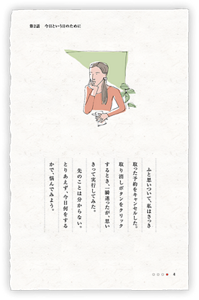 第2話 今日という日のために
ふと思いついて、私はさっき
取った予約をキャンセルした。
取り消しボタンをクリック
するとき、一瞬迷ったが、思い
きって実行してみた。
先のことは分からない。
とりあえず、今日何をする
かで、悩んでみよう。
4